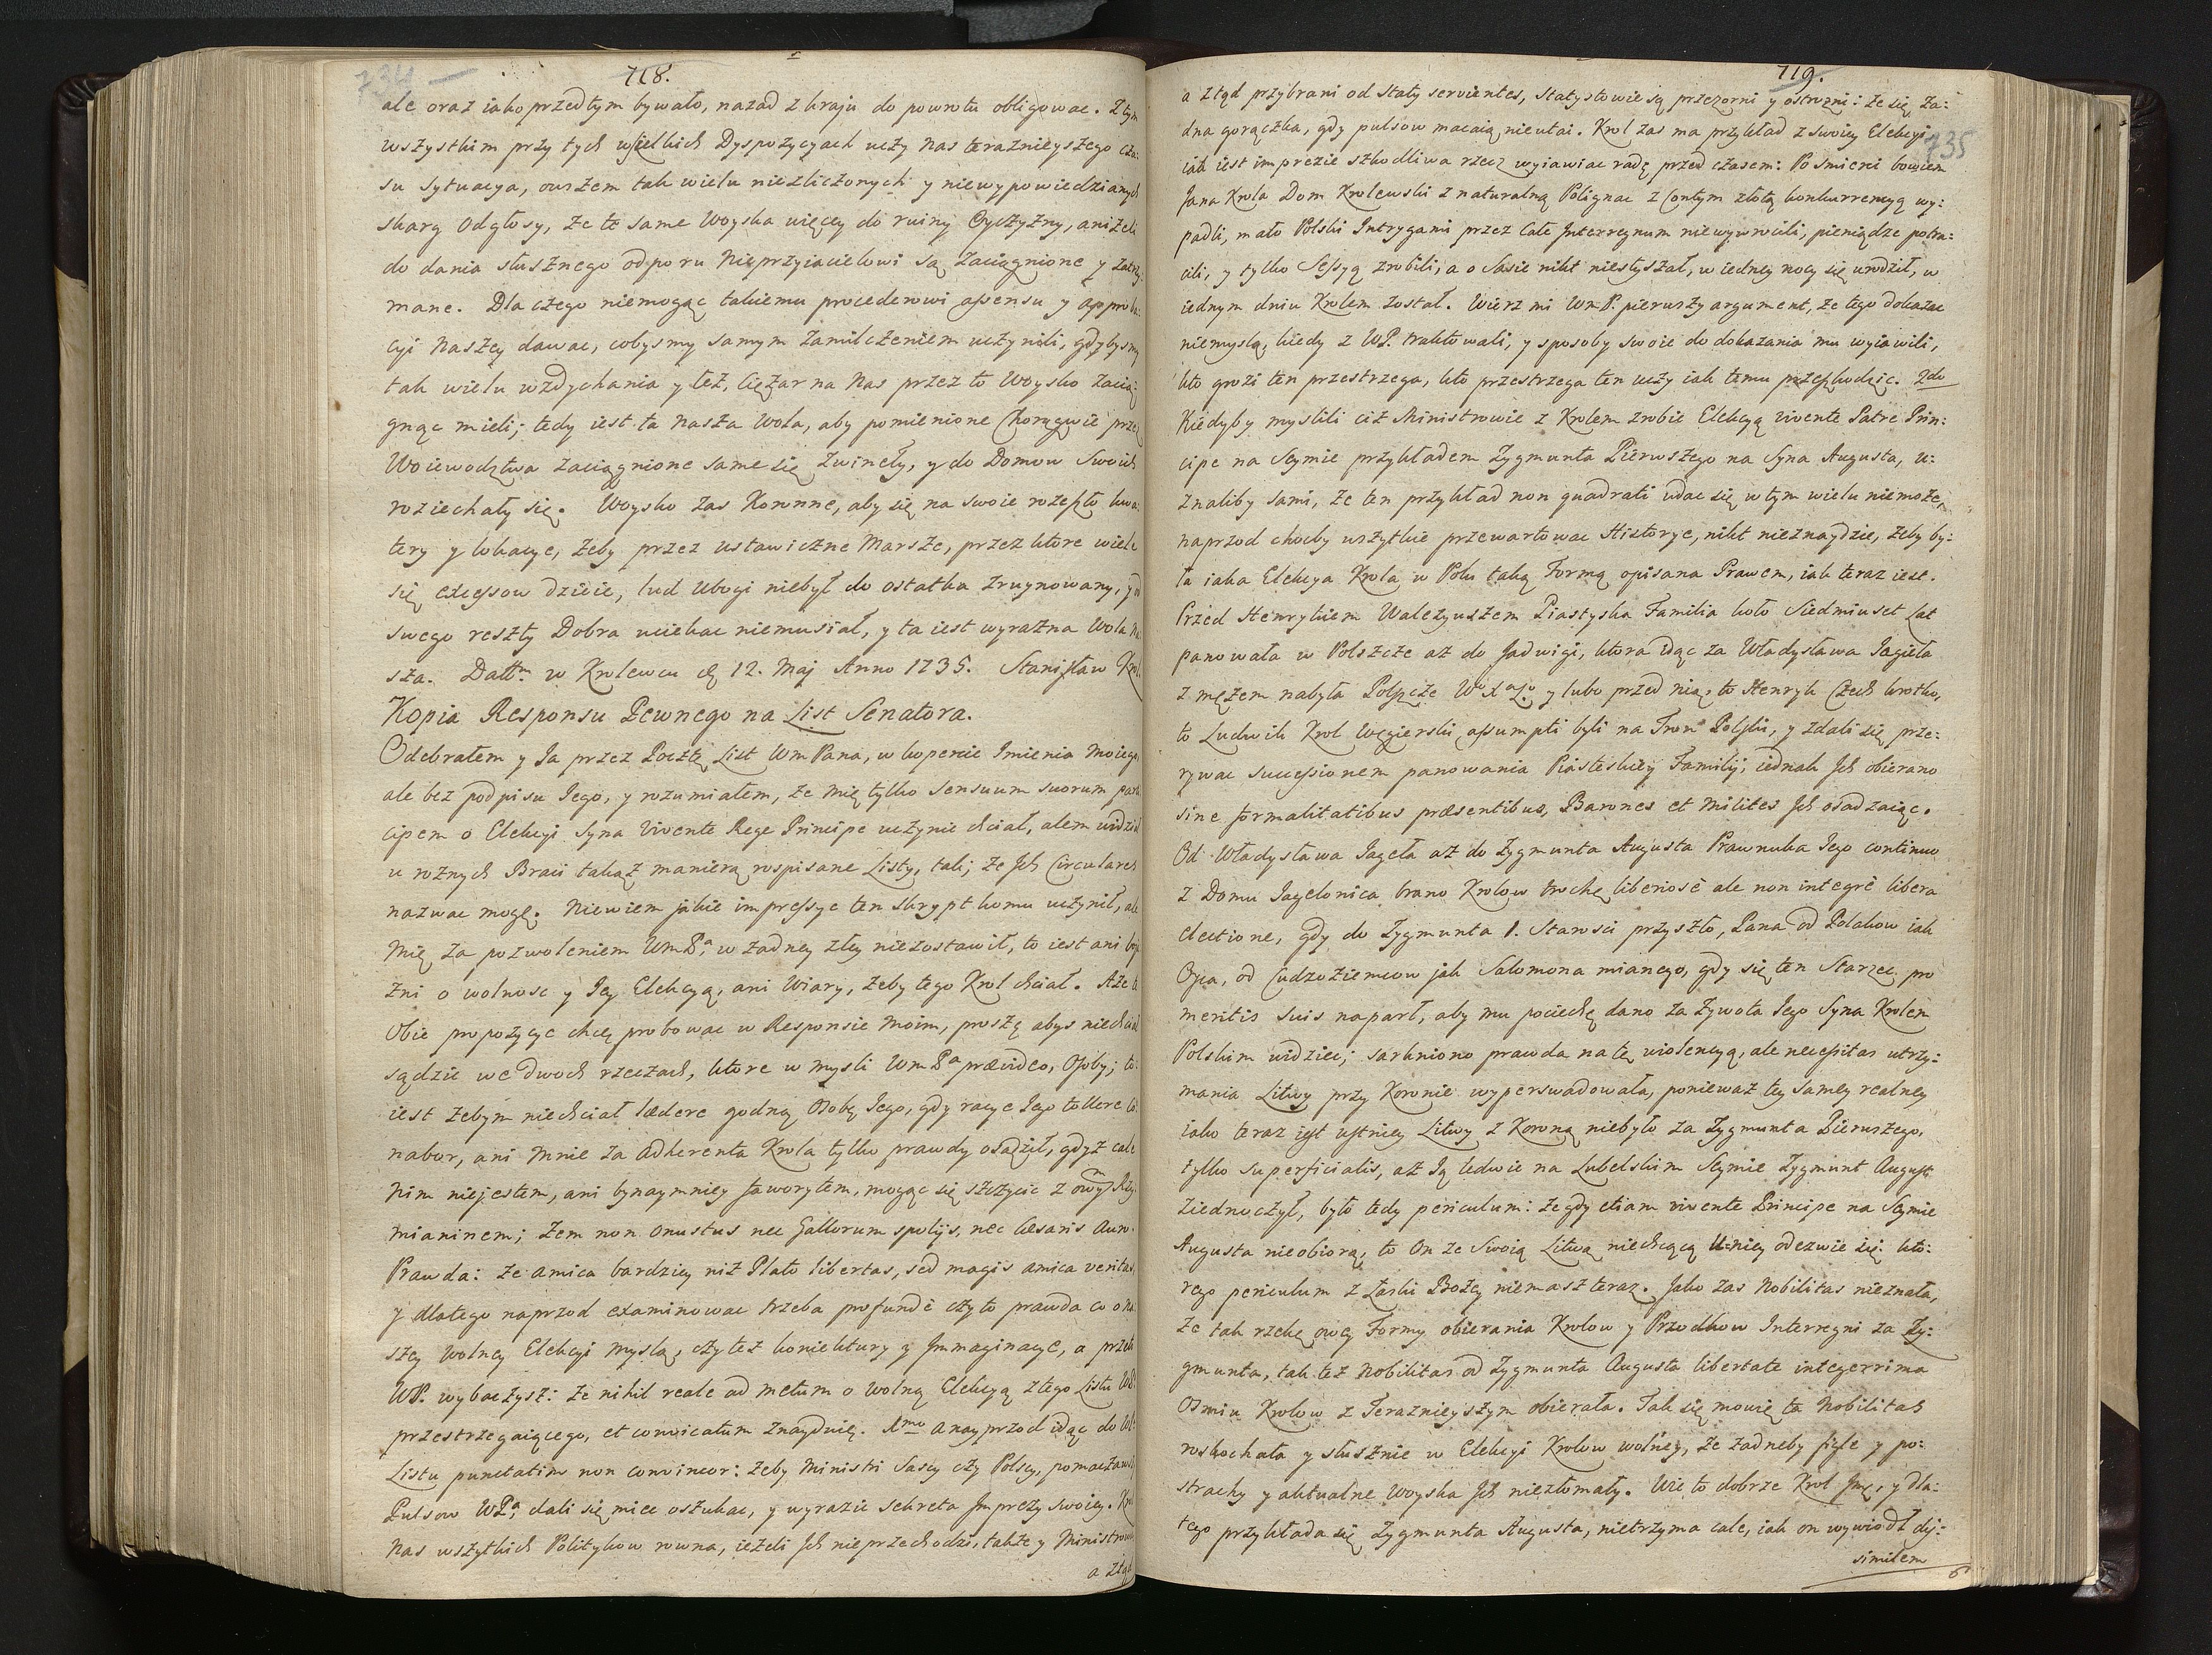 734
718.
ale oraz iako przedtym bywało, nazad z kraju do powrotu obligowac. Z tym
wszystkim przy tych wszelkich Dyspozycyach uczy nas terazniejszego cza:
su sytuacya, owszem tak wielu niezliczonych y niewypowiedzianych
skarg odgłosy, że te same Woyska więcey do ruiny Oyczyzny, aniżeli
do dania słusznego odporu Nieprzyiacielowi są zaciągnione y zatrzy
mane. Dla czego niemogąc takiemu procederowi assensu y approba:
cyi Naszey dawac, cobysmy samym zamilczeniem uczynili, gdybysmy
tak wielu wzdychania y łez, ciężar na Nas przez to Woysko zacią:
gnąc mieli; tedy iest ta Nasza Wola, aby pomienione Chorągwie przez
Woiewodztwa zaciągnione same się zwineły, y do Domow Swoich
roziechały się. Woysko zas Koronne, aby się na swoie rozeszło kwa:
tery y lokacye, żeby przez ustawiczne Marsze, przez ktore wiele
się excessow dzieie, lud ubogi niebył do ostatka zruynowany, y od
swego reszty Dobra uciekac niemusiał, y ta iest wyrazna Wola Na
sza. Datt: w Krolewcu d 12. Maj Anno 1735. Stanisław Krol
Kopia Responsu Pewnego na List Senatora.
Odebrałem y Ia przez Pocztę List Wm Pana, w kopercie Imienia moiego,
ale bez podpisu Iego, y rozumiałem, że mię tylko sensuum suorum parti
cipem o Elekcyi Syna Vivente Rege Principe uczynic chciał, alem widział
u roznych Braci takąż manierą rospisane Listy, tak; że Ich Circulares
nazwac mogę. Niewiem jakie impressye ten skrypt komu uczynił, ale
mię za pozwoleniem WmPa, w żadney złey niezostawił, to iest ani boja
zni o wolnosc y Iey Elekcyą, ani Wiary, żeby tego Krol chciał. Aże te
Obie propozycye chcę probowac w Responsie moim, proszę abys niechciał
sądzic we dwoch rzeczach, ktore w mysli Wm Pa prævideo, Osoby; to:
iest żebym niechciał lædere godną Osobę Iego, gdy racye Iego tollere co:
nabor, ani mnie za adherenta Krola tylko prawdy osądził, gdyż cale
Nim niejestem, ani bynaymniey faworytem, mogąc się szczycic z owym Rzy:
mianinem; żem non onustus nec Gallorum spolijs, nec Cæsaris Auro.
Prawda: że amica bardziey niż Plato libertas, sed magis amica veritas,
y dlatego naprzod examinowac trzeba profundè czy to prawda co o na:
szey wolney Elekcyi myslą, czy też koniektury y Immaginacye, a przeto
WP. wybaczysz: że nihil reale ad metum o wolną Elekcyą z tego Listu WP.
przestrzegaiącego, et convicatum znayduię. 1mo a nayprzod idąc do WP.
Listu punctatim non convincor: żeby Ministri Sascy czy Polscy, pomaczawszy
Pulsow WPa, dali się miec oszukac, y wyrazic sekreta Imprezy swoiey. Krol
Nas wszytkich Politykow rowna, ieżeli Ich nieprzechodzi, także y Ministrowie
a ztąd
719.
735
a ztąd przybrani od Staty servientes, Statystowie są przezorni y ostrozni: że się ża:
dna gorączka, gdy pulsow macaią nieutai. Krol zas ma przykład z swoiey Elekcyi
iak iest imprezie szkodliwa rzecz wyiawiac radę przed czasem: Po smierci bowiem
Jana Krola Dom Krolewski z naturalną Polignac z Contym złotą konkurrencyą wy:
padli, mało Polski Intrygami przez Całe Interregnum niewywrocili, pieniądze potra:
cili, y tylko Sessyą zrobili, a o Sasie nikt niesłyszał, w iedney nocy się urodził, w
iednym dniu Krolem został. Wierz mi WmP. pierwszy argument, że tego dokazac
niemyslą, kiedy z WP. traktowali, y sposoby swoie do dokazania mu wyiawili,
kto grozi ten przestrzega, kto przestrzega ten uczy iak temu przeszkodzic. 2do
Kiedyby myslili ciż Ministrowie z Krolem zrobic Elekcyą vivente Patre Prin:
cipe na Seymie przykładem Zygmunta Pierwszego na Syna Augusta, u:
znaliby sami, że ten przykład non quadrati udac się w tym wielu niemoże,
naprzod chocby wszytkie przewartowac Historye, nikt nieznaydzie, żeby by:
ła iaka Elekcya Krola w Polu taką Formą opisana Prawem, iak teraz iest.
Przed Henrykiem Walezyuszem Piastyska Familia koło Siedmiuset Lat
panowała w Polszcze aż do Jadwigi, ktora idąc za Władysława Jagieła
z mężem nabyła Polszcze y lubo przed nią, to Henryk Czech krotko,
to Ludwik Krol Węgierski assumpti byli na Tron Polski, y zdali się prze:
rywac successionem panowania Piasteskiey Familij, iednak Ich obierano
sine formalitatibus præsentibus, Barones et milites Ich osadzaiąc.
Od Władysława Jageła aż do Zygmunta Augusta Prawnuka Iego continuo
z Domu Jagelonica brano Krolow trochę liberiosè ale non integrè libera
electione, gdy do Zygmunta 1. Starosci przyszło, Pana od Polakow iak
Oyca, od Cudzoziemcow jak Salomona mianego, gdy się ten Starzec pro
meritis suis naparł, aby mu pociechę dano za żywota Iego Syna Krolem
Polskim widziec; sarkniono prawda na tę violencyą, ale necessitas utrzy:
mania Litwy przy Koronie wyperswadowała, ponieważ tey samey realney
iako teraz iest ustniey Litwy z Koroną niebyło za Zygmunta Pierwszego,
tylko superficialis, aż Ią ledwie na Lubelskim Seymie Zygmunt August
ziednoczył, było tedy periculum: że gdy etiam vivente Principe na Seymie
Augusta nieobiorą, to On ze Swoią Litwą niechcącą Uniey odezwie się. kto:
rego periculum z Łaski Bożey niemasz teraz. Jako zas Nobilitas nieznała,
że tak rzekę owey Formy obierania Krolow y Przodkow Interregni za Zy:
gmunta, tak też Nobilitas od Zygmunta Augusta libertate integerrima
Osmiu Krolow z Terazniejszym obierała. Tak się mowię ta Nobilitas
roskochała y słusznie w Elekcyi Krolow wolney, że żadneby siłe y po:
strachy y aktualne Woyska Ich niezłomały. Wie to dobrze Krol Jmć, y dla:
tego przykłada się Zygmunta Augusta, nietrzyma cale, iak on wywiodł dis:
similem